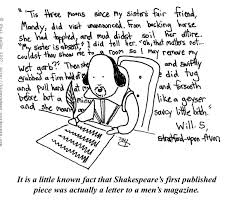 "'Tis three moons since my sister's fair friend,
Mandy, did visit unannounced. From bucking horse
she had toppled, and mud didst soil her attire.
"My sister is absent" I did tell her. "Oh, that matters not...
couldst thou show me thy room so I may remove my
wet garb?" Then she and swiftly
grabbed a firm hold of did tug
and pulled my hard and forsooth
before but a like a geyser
and she savory little bath."
Will S.
Stratford-upon-Avon
It is a little known fact that Shakespeare's first published
piece was actually a letter to a men's magazine.